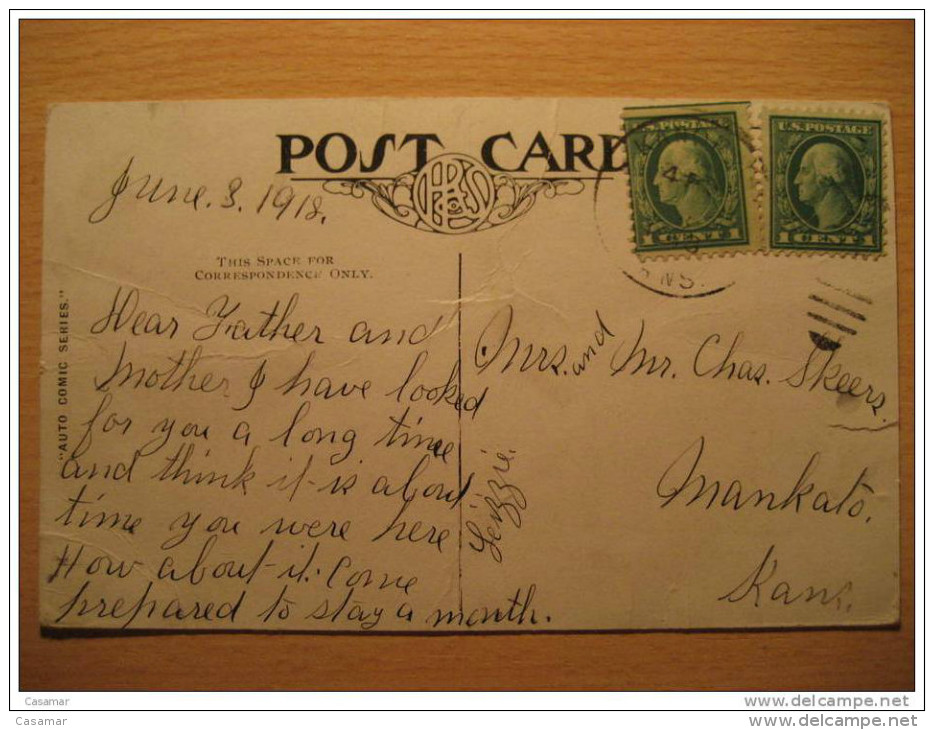 POST CARD
June. 3. 1918.
THIS SPACE FOR
CORRESPONDENCE ONLY.
"AUTO COMIC SERIES."
Dear Father and
Mother I have looked
for you a long time
and think it is about
time you were here
How about it. Come
prepared to stay a month.
Lizzie.
U.S. POSTAGE
1 CENT 1
U.S. POSTAGE
1 CENT 1
NS.
Mrs. and Mr. Chas. Skeers.
Mankato.
Kans.
Casamar
Casamar
www.delcampe.net
www.delcampe.net